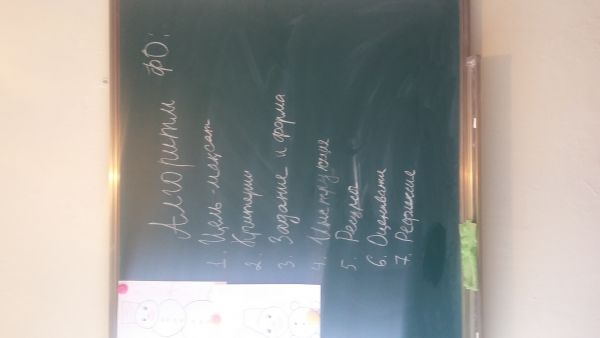 Алгоритм ФО:
1. Цель - мақсат
2. Критерии
3. Задание и форма
4. Инструкция
5. Ресурсы
6. Оценивание
7. Рефлексия